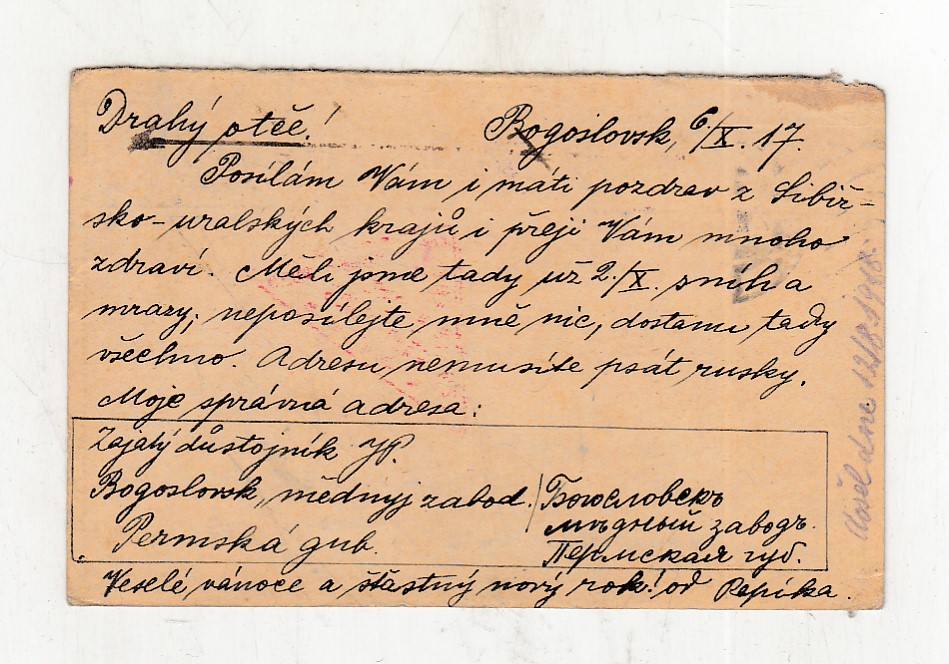 Drahý otče!
Bogoslovsk, 6./X. 17.
Posílám Vám i máti pozdrav z Sibiř-
sko-uralských krajů i přeji Vám mnoho
zdraví. Měli jsme tady už 2./X. sníh a
mrazy; neposílejte mně nic, dostanu tady
všechno. Adresu nemusíte psát rusky.
Moje správná adresa:
Zajatý důstojník JP.
Bogoslovsk, mědnyj zavod. / Богословскъ
мѣдный заводъ.
Permská gub.
Пермская губ.
Veselé vánoce a šťastný nový rok! od Pepíka.
došel dne 12/8. 1918.